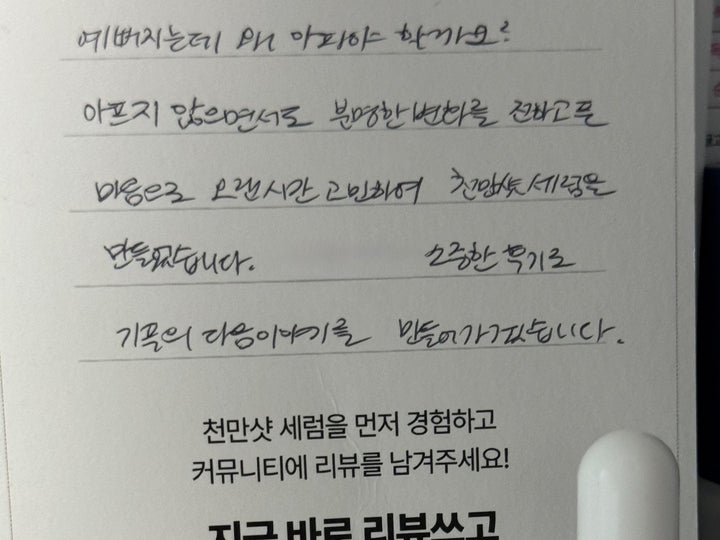 예뻐지는데 왜 아파야 할까요?
아프지 않으면서도 분명한 변화를 전하고픈
마음으로 오랜시간 고민하여 천만샷 세럼을
만들었습니다. 소중한 후기로
기골의 다음이야기를 만들어가겠습니다.
천만샷 세럼을 먼저 경험하고
커뮤니티에 리뷰를 남겨주세요!
지금 바로 리뷰쓰고